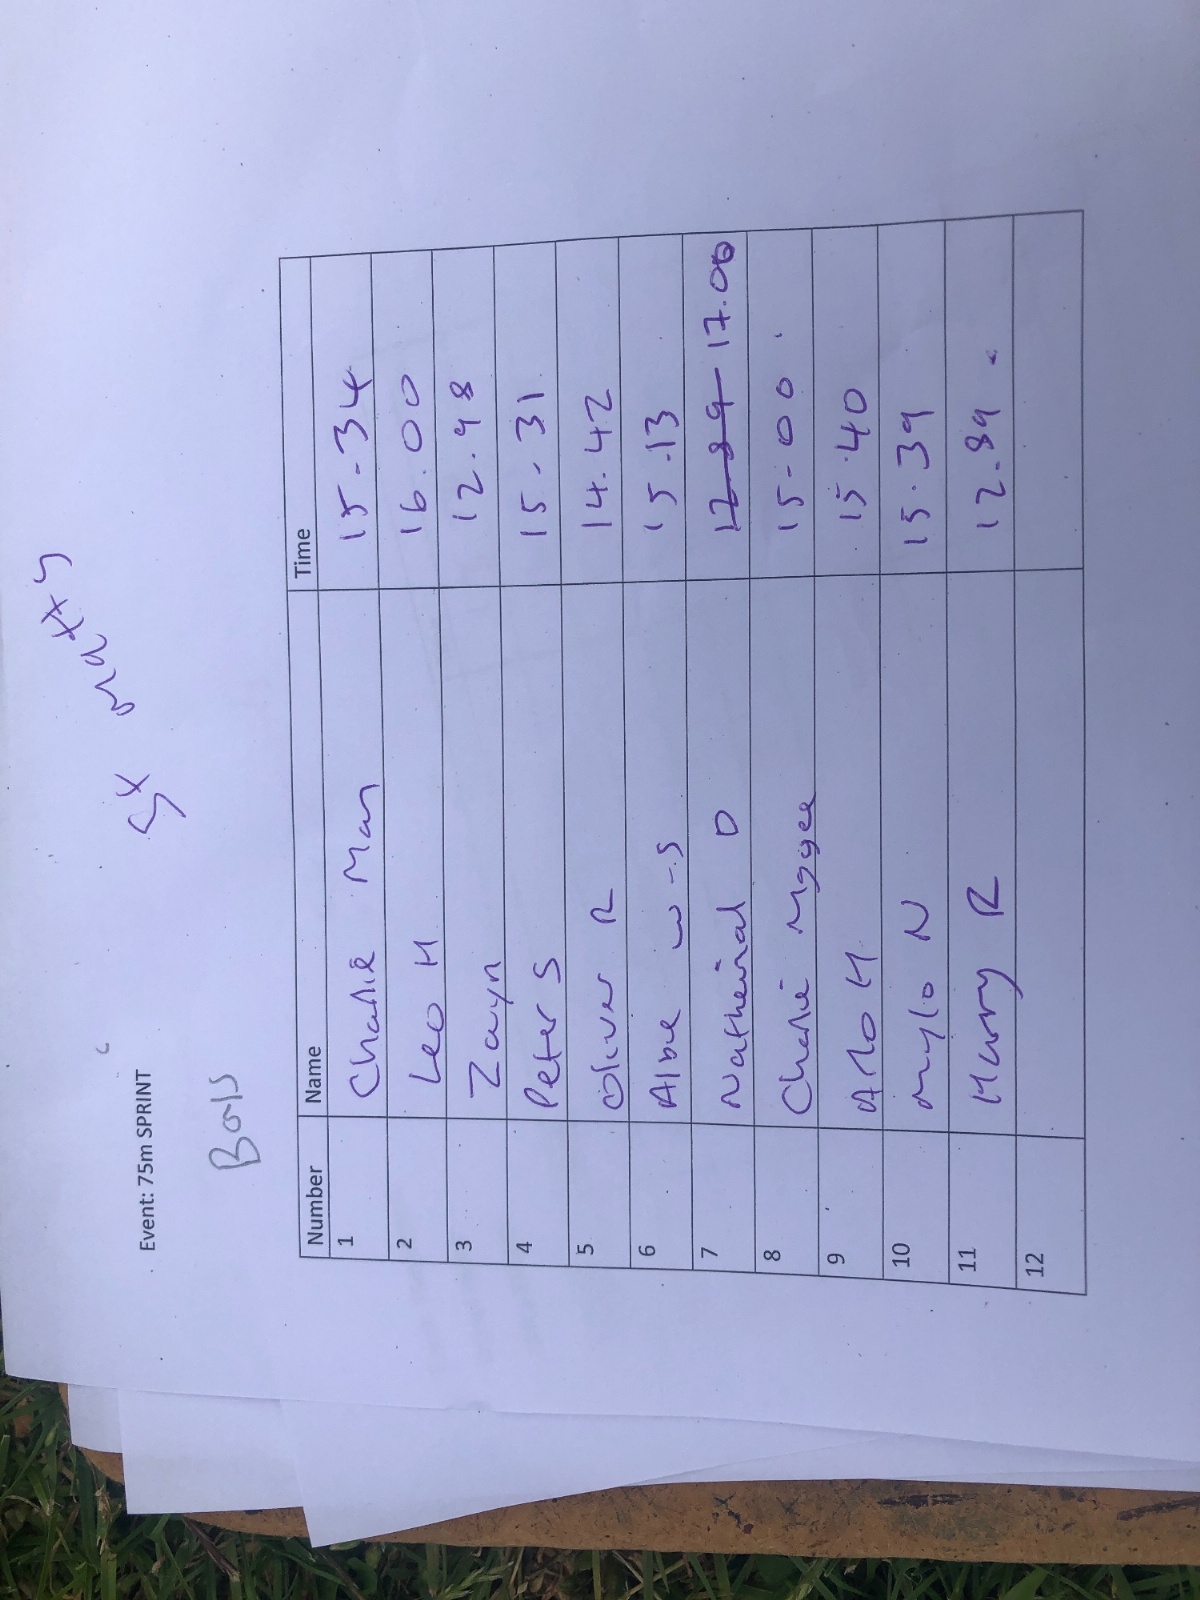 Event: 75m SPRINT
Boys
Number Name Time
1 Charlie May 15.34
2 Leo H 16.00
3 Zayn 12.98
4 Peter S 15.31
5 Oliver R 14.42
6 Albie W-S 15.13
7 D 12.89 17.00
8 Charlie 15.00
9 Arlo H 15.40
10 Mylo N 15.39
11 Harry R 12.89
12